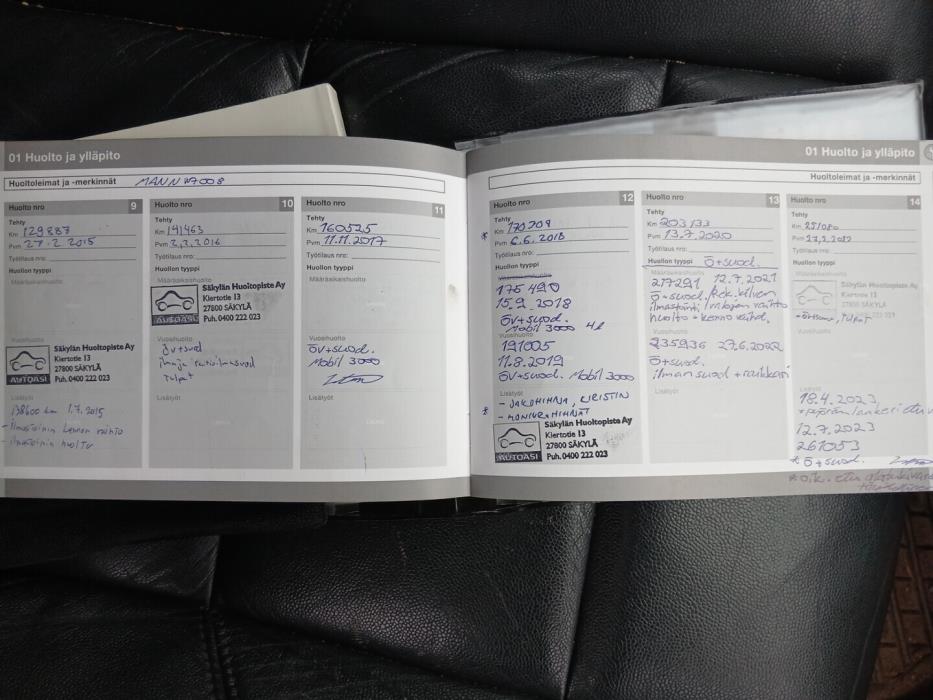 01 Huolto ja ylläpito
Huoltoleimat ja -merkinnät MANN
Huolto nro 9
Tehty
Km 129887
Pvm 27.2.2015
Työtilaus nro:
Huollon tyyppi
Määräaikaishuolto
Vuosihuolto
Säkylän Huoltopiste Ay
Kiertotie 13
27800 SÄKYLÄ
Puh. 0400 222 023
AUTOASI
Lisätyöt
138600 km 1.7.2015
- ilmastoinin kennon vaihto
- ilmastoinin huolto
Huolto nro 10
Tehty
Km 141463
Pvm 2.3.2016
Työtilaus nro:
Huollon tyyppi
Määräaikaishuolto
Säkylän Huoltopiste Ay
Kiertotie 13
27800 SÄKYLÄ
Puh. 0400 222 023
AUTOASI
Vuosihuolto
öv+suod
tulpat
Lisätyöt
Huolto nro 11
Tehty
Km 160525
Pvm 11.11.2017
Työtilaus nro:
Huollon tyyppi
Määräaikaishuolto
Vuosihuolto
öv+suod.
Mobil 3000
Lisätyöt
01 Huolto ja ylläpito
Huoltoleimat ja -merkinnät
Huolto nro 12
Tehty
* Km 170709
Pvm 6.6.2018
Työtilaus nro:
Huollon tyyppi
Määräaikaishuolto
175490
15.9.2018
öv+suod.
Mobil 3000 4l
Vuosihuolto
191005
11.8.2019
öv+suod. Mobil 3000
Lisätyöt
* - JAKOHIHNA, KIRISTIN
- MONIURAHIHNAT
Säkylän Huoltopiste Ay
Kiertotie 13
27800 SÄKYLÄ
Puh. 0400 222 023
AUTOASI
Huolto nro 13
Tehty
Km 203133
Pvm 13.7.2020
Työtilaus nro:
Huollon tyyppi ö+suod.
Määräaikaishuolto
217291 12.7.2021
ö+suod. Rek.kilven
ilmastointi / valojen vaihto
huolto + kenno vaihd.
Vuosihuolto
235936 27.6.2022
ö+suod.
ilman suod + raikkari
Lisätyöt
Huolto nro 14
Tehty
Km
Pvm
Työtilaus nro:
Huollon tyyppi
Määräaikaishuolto
Säkylän Huoltopiste Ay
Kiertotie 13
27800 SÄKYLÄ
TULPAT
Vuosihuolto
Lisätyöt
18.4.2023
12.7.2023
261053
* ö+suod.